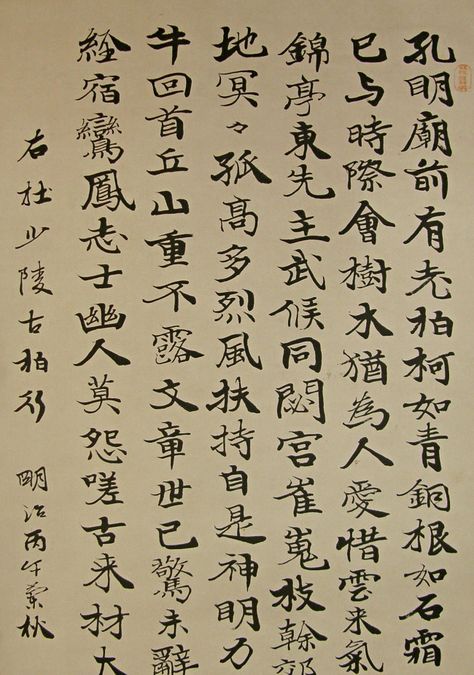 孔明廟前有老柏柯如青銅根如石霜
已与時際會樹木猶為人愛惜雲来氣
錦亭東先主武侯同閟宮崔嵬枝幹郊
地冥々孤高多烈風扶持自是神明力
牛回首丘山重不露文章世已驚未辭
経宿鸞鳳志士幽人莫怨嗟古来材大
右杜少陵古柏行 明治丙午秋